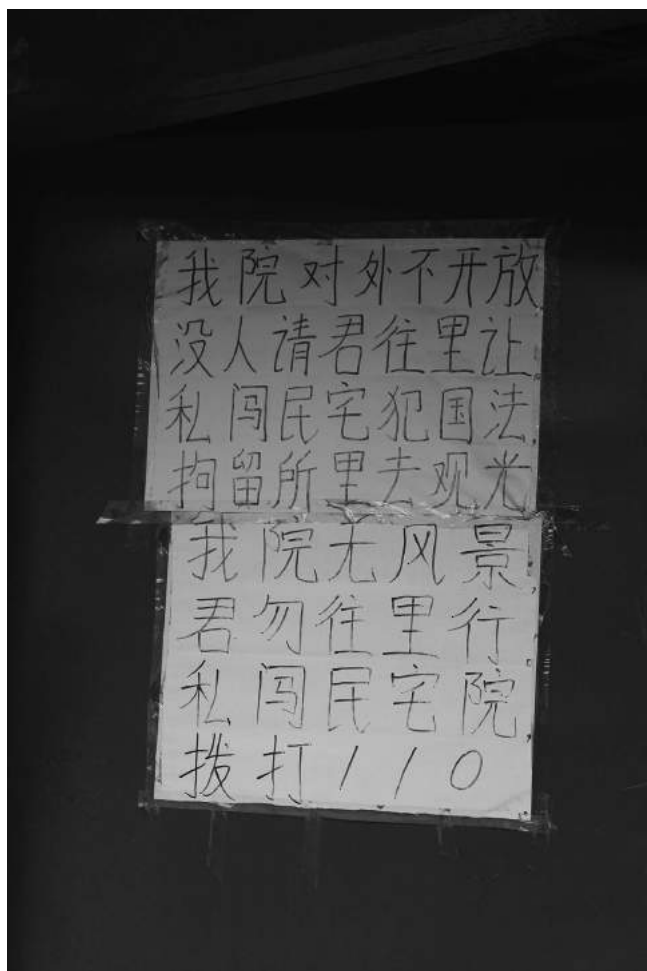 我院对外不开放
没人请君往里让
私闯民宅犯国法
拘留所里去观光
我院无风景
君勿往里行
私闯民宅院
拨打110